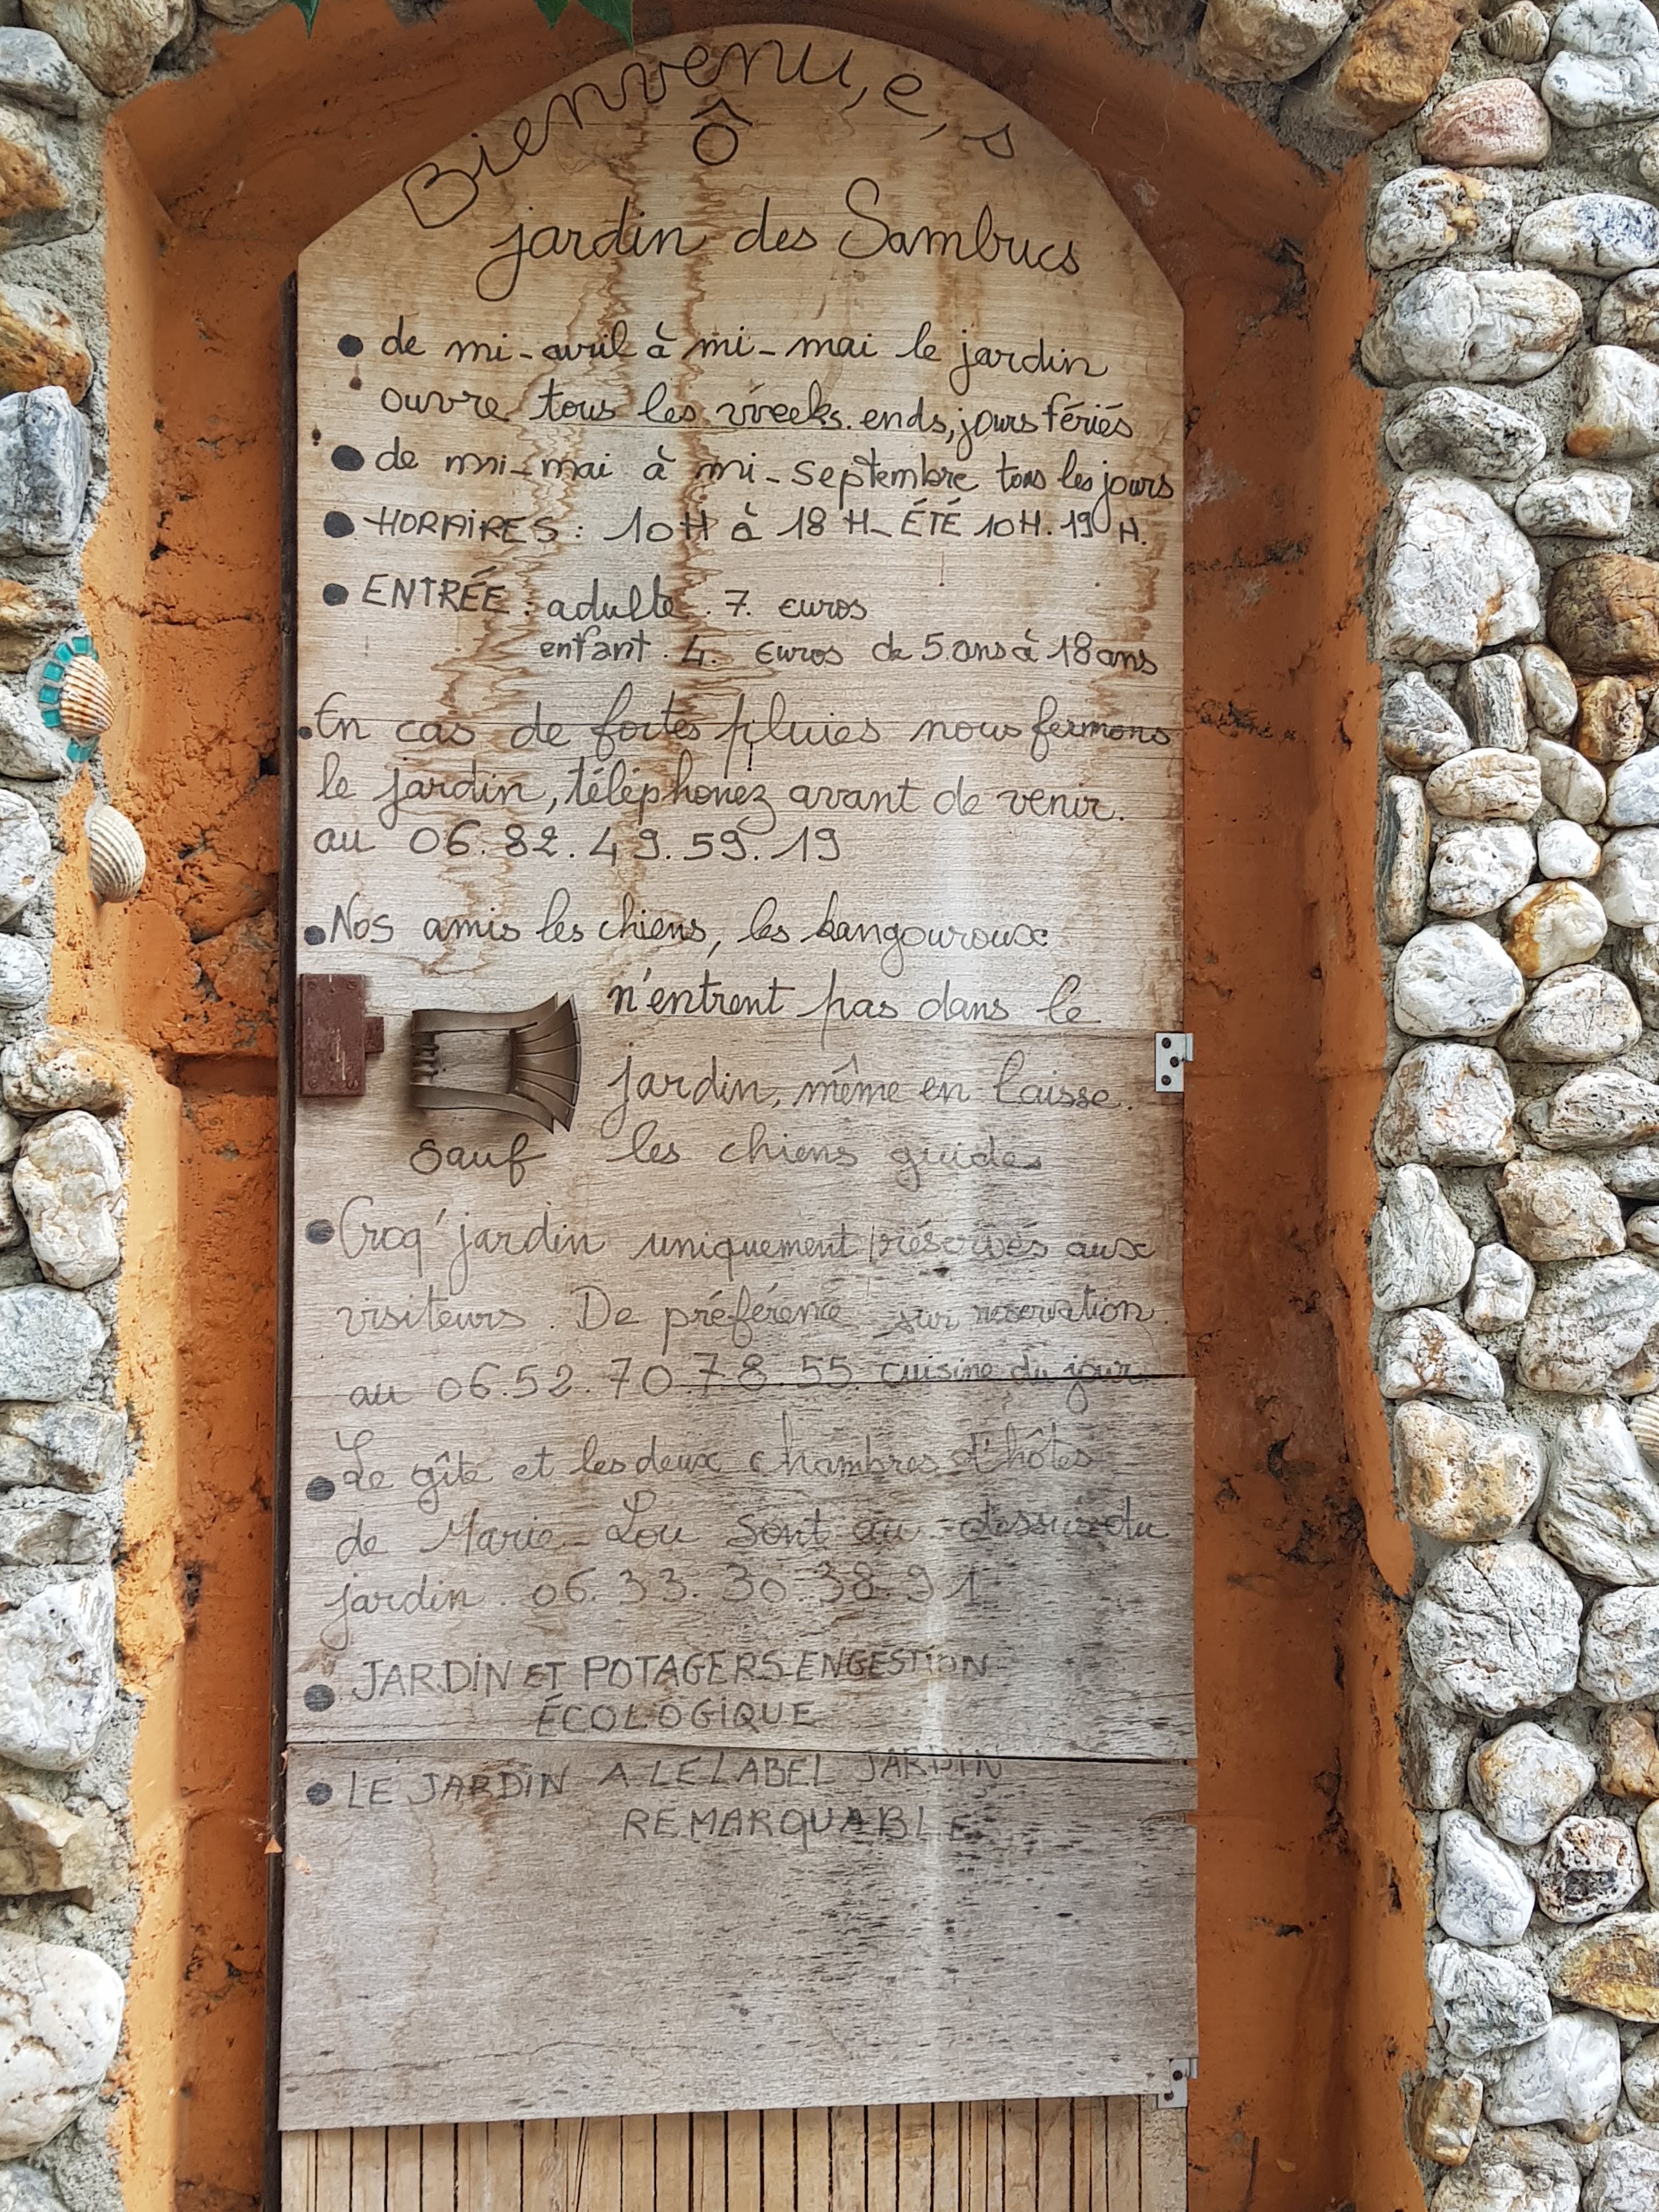 Bienvenu,e,s
Ô
jardin des Sambucs
de mi-avril à mi-mai le jardin
ouvre tous les weeks.ends, jours fériés
de mi-mai à mi-septembre tous les jours
HORAIRES: 10H à 18H_ÉTÉ 10H.19H.
ENTRÉE: adulte. 7. euros
enfant. 4. Euros de 5 ans à 18 ans
En cas de fortes pluies nous fermons
le jardin, téléphonez avant de venir.
au 06.82.49.59.19
Nos amis les chiens, les kangouroux
n'entrent pas dans le
jardin, même en laisse.
Sauf les chiens guides
Croq'jardin uniquement réservés aux
visiteurs. De préférence sur reservation.
au 06.52.70.78.55 cuisine du jour
Le gîte et les deux chambres d'hôtes
de Marie-Lou sont au-dessus du
jardin. 06.33.30.38.91
JARDIN ET POTAGERS EN GESTION
ÉCOLOGIQUE
LE JARDIN A LE LABEL JARDIN
REMARQUABLE